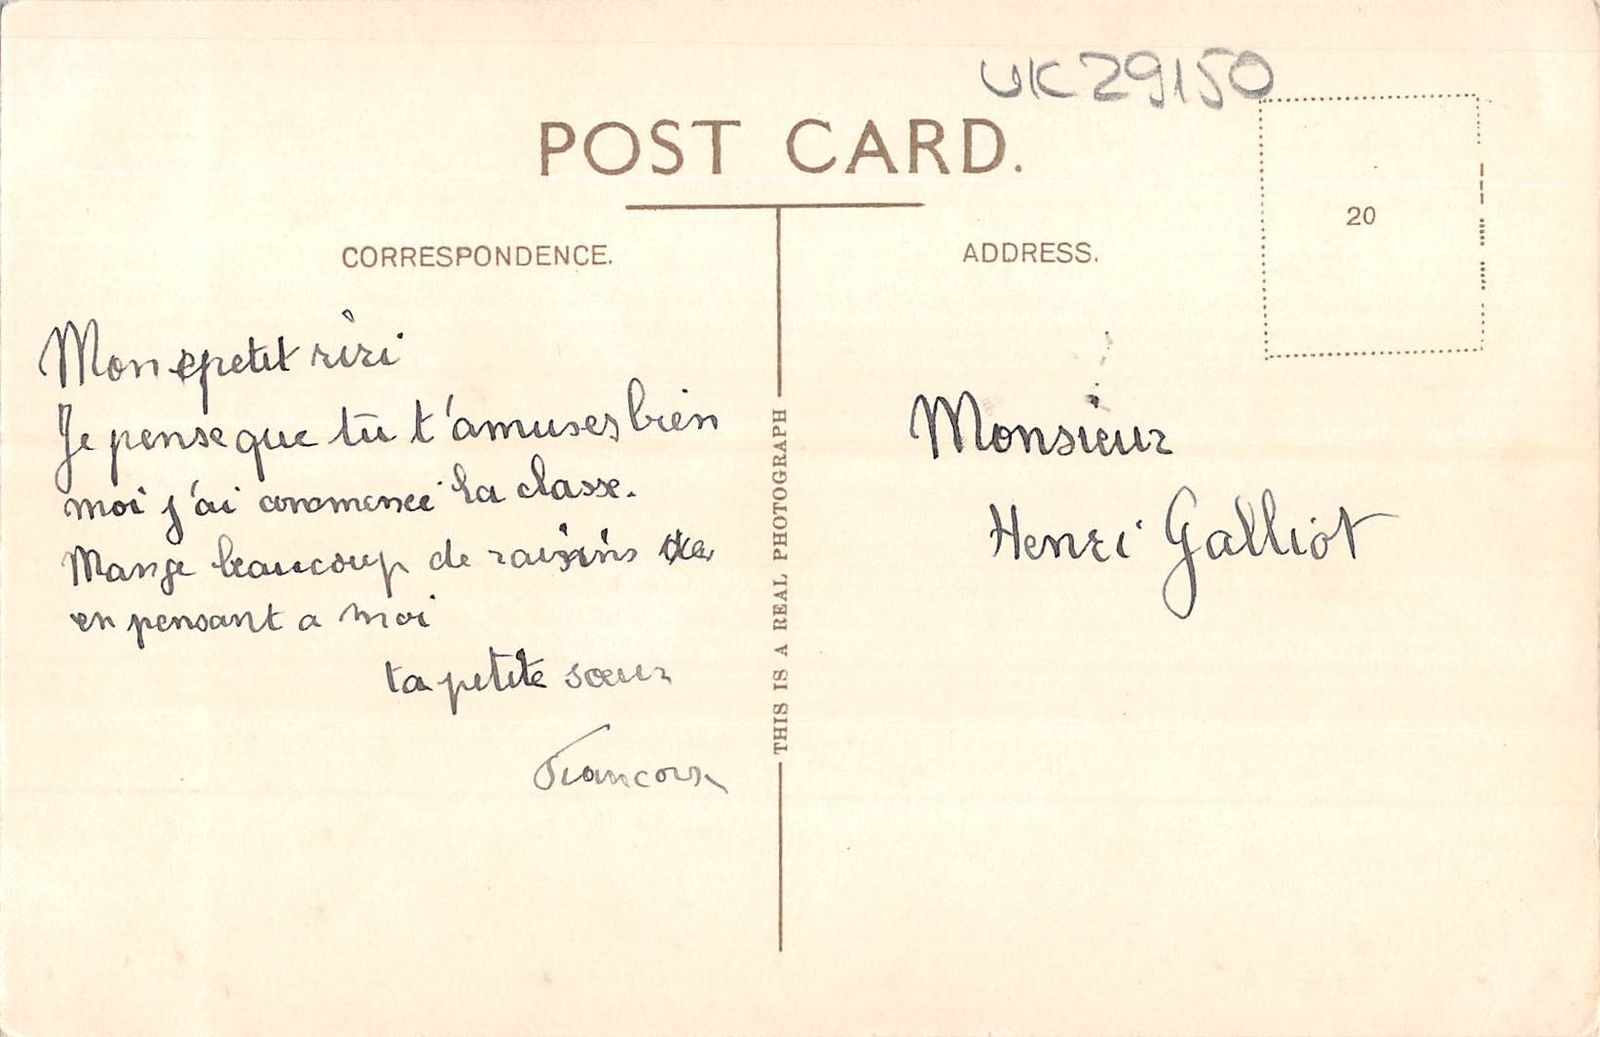 UK29150
POST CARD.
CORRESPONDENCE.
ADDRESS.
20
Mon petit riri
Je pense que tu t'amuses bien
moi j'ai commencé la classe.
Mange beaucoup de raisins
en pensant a moi
ta petite sœur
THIS IS A REAL PHOTOGRAPH
Monsieur
Henri Galliot